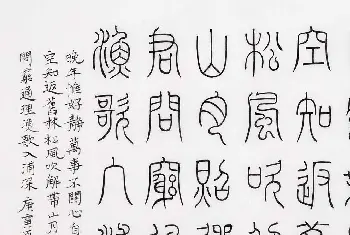 空知返
松風吹
山月照
君問窮
漁歌入
晚年惟好靜萬事不關心自
空知返舊林松風吹解帶山月
問窮通理漁歌入浦深庚寅